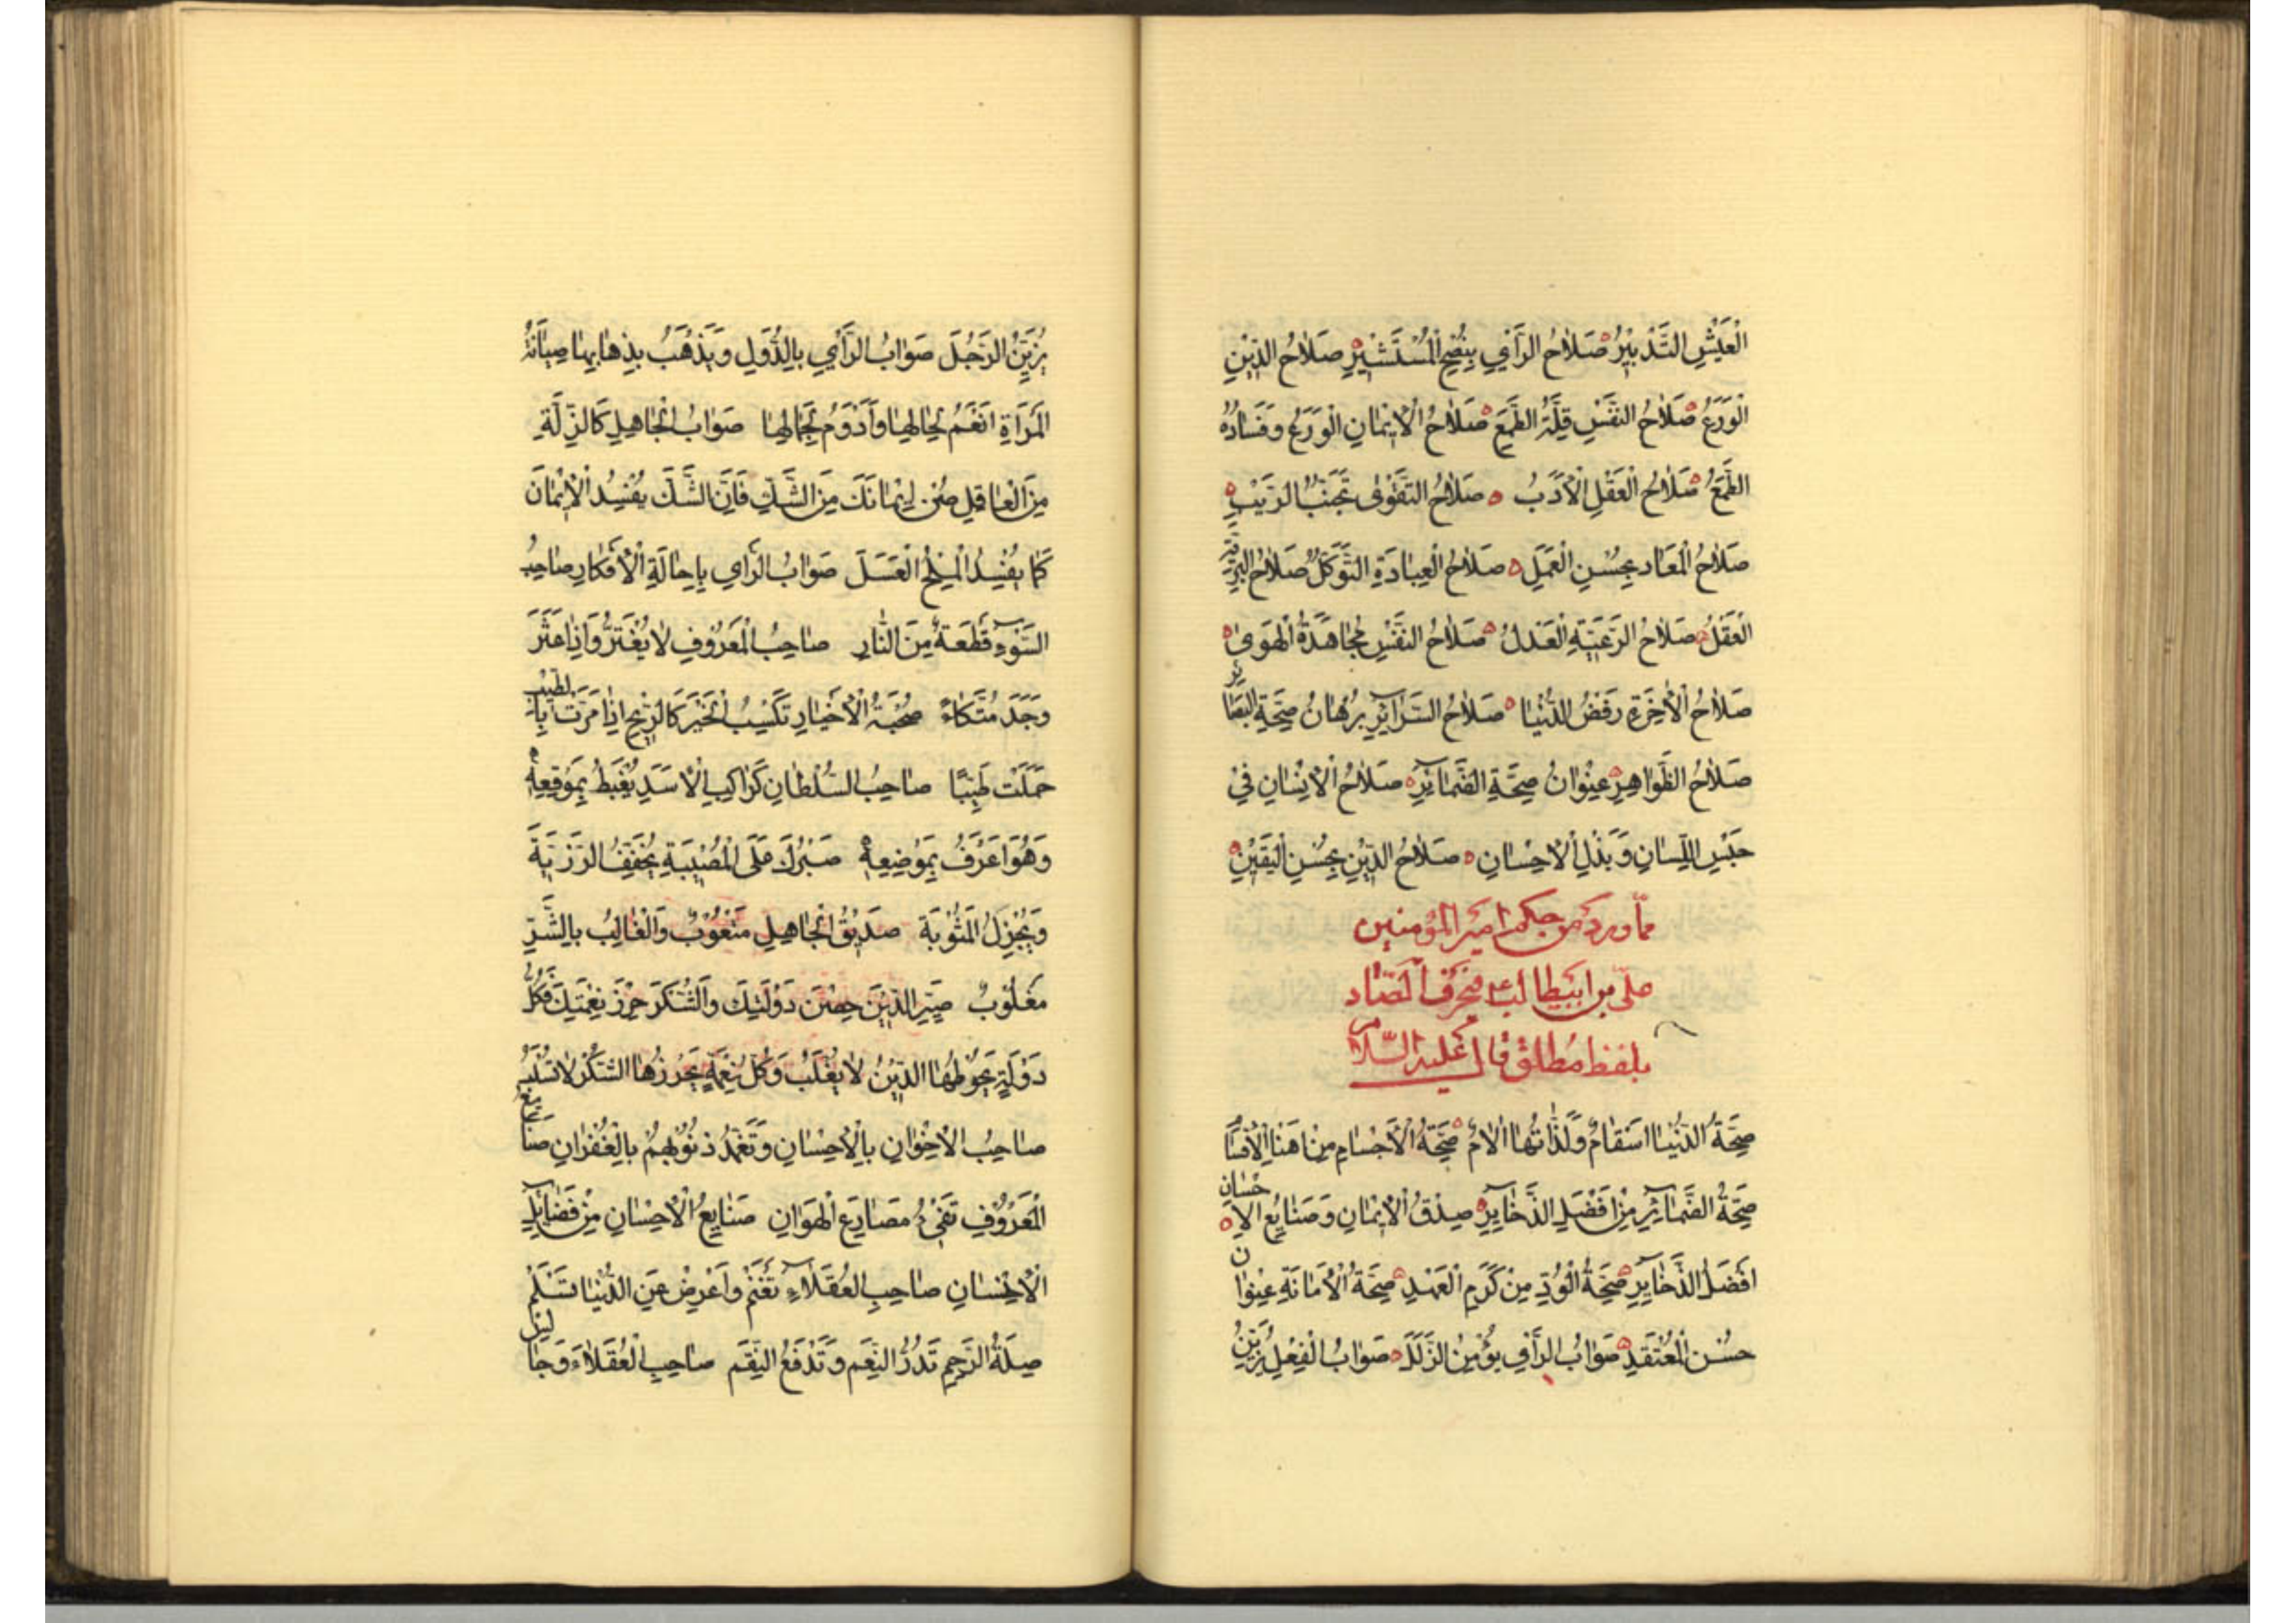 الْعَيْشِ التَّدْبِيْرُ صَلَاحُ الرَّأْيِ بِنُصْحِ الْمُسْتَشِيْرِ صَلَاحُ الدِّيْنِ
الْوَرَعُ صَلَاحُ النَّفْسِ قِلَّةُ الطَّمَعِ صَلَاحُ الْاِيْمَانِ الْوَرَعُ وَفَسَادُهُ
الطَّمَعُ صَلَاحُ الْعَقْلِ الْاَدَبُ صَلَاحُ التَّقْوٰى تَجَنُّبُ الرَّيْبِ
صَلَاحُ الْمَعَادِ بِحُسْنِ الْعَمَلِ صَلَاحُ الْعِبَادَةِ التَّوَكُّلُ صَلَاحُ الْبَرِيَّةِ
الْعَقْلُ صَلَاحُ الرَّعِيَّةِ الْعَدْلُ صَلَاحُ النَّفْسِ مُجَاهَدَةُ الْهَوٰى
صَلَاحُ الْاٰخِرَةِ رَفْضُ الدُّنْيَا صَلَاحُ السَّرَآئِرِ بُرْهَانُ صِحَّةِ الْبَصَائِرِ
صَلَاحُ الظَّوَاهِرِ عِنْوَانُ صِحَّةِ الضَّمَآئِرِ صَلَاحُ الْاِنْسَانِ فِيْ
حَبْسِ اللِّسَانِ وَبَذْلِ الْاِحْسَانِ صَلَاحُ الدِّيْنِ بِحُسْنِ الْيَقِيْنِ
ممّا ورد من حكم امير المؤمنين
علىّ بن ابيطالب ع فى حرف الصّاد
بلفظ مطلق قال عليه السّلام
صِحَّةُ الدُّنْيَا اَسْقَامٌ وَلَذَّاتُهَا اٰلَامٌ صِحَّةُ الْاَجْسَامِ مِنْ اَهْنَاِ الْاَقْسَامِ
صِحَّةُ الضَّمَآئِرِ مِنْ اَفْضَلِ الذَّخَآيِرِ صِدْقُ الْاِيْمَانِ وَصَنَايِعُ الْاِحْسَانِ
اَفْضَلُ الذَّخَآيِرِ صِحَّةُ الْوُدِّ مِنْ كَرَمِ الْعَهْدِ صِحَّةُ الْاَمَانَةِ عِنْوَانُ
حُسْنِ الْمُعْتَقَدِ صَوَابُ الرَّأْيِ يُؤْمِنُ الزَّلَلَ صَوَابُ الْفِعْلِ يُزَيِّنُ
يُزَيِّنُ الرَّجُلَ صَوَابُ الرَّأْيِ بِالدُّوَلِ وَيَذْهَبُ بِذِهَابِهَا صِيَانَةُ
الْمَرْاَةِ اَنْعَمُ لِحَالِهَا وَاَدْوَمُ لِجَمَالِهَا صَوَابُ الْجَاهِلِ كَالزَّلَّةِ
مِنَ الْعَاقِلِ صُنْ اِيْمَانَكَ مِنَ الشَّكِّ فَاِنَّ الشَّكَّ يُفْسِدُ الْاِيْمَانَ
كَمَا يُفْسِدُ الْمِلْحُ الْعَسَلَ صَوَابُ الرَّاْيِ بِاِحَالَةِ الْاَفْكَارِ صَاحِبُ
السَّوْءِ قِطْعَةٌ مِنَ النَّارِ صَاحِبُ الْمَعْرُوْفِ لَا يُغْتَرُّ وَاِذَا عَثَرَ
وَجَدَ مُتَّكَاءً صُحْبَةُ الْاَخْيَارِ تَكْسِبُ الْخَيْرَ كَالرِّيْحِ اِذَا مَرَّتْ بِالطِّيْبِ
حَمَلَتْ طَيِّبًا صَاحِبُ السُّلْطَانِ كَرَاكِبِ الْاَسَدِ يُغْبَطُ بِمَوْقِعِهِ
وَهُوَ اَعْرَفُ بِمَوْضِعِهِ صَبْرُكَ عَلَى الْمُصِيْبَةِ يُخَفِّفُ الرَّزِيَّةَ
وَيُجْزِلُ الْمَثُوْبَةَ صَدِيْقُ الْجَاهِلِ مَتْعُوْبٌ وَالْغَالِبُ بِالشَّرِّ
مَغْلُوْبٌ صَيِّرِ الدِّيْنَ حِصْنَ دَوْلَتِكَ وَالشُّكْرَ حِرْزَ نِعْمَتِكَ فَكُلُّ
دَوْلَةٍ يَحُوْطُهَا الدِّيْنُ لَا يُغْلَبُ وَكُلُّ نِعْمَةٍ يَحْرُزُهَا الشُّكْرُ لَا تُسْلَبُ
صَاحِبِ الْاِخْوَانِ بِالْاِحْسَانِ وَتَغَمَّدْ ذُنُوْبَهُمْ بِالْغُفْرَانِ صَنَايِعُ
الْمَعْرُوْفِ تَقِيْ مَصَارِعَ الْهَوَانِ صَنَايِعُ الْاِحْسَانِ مِنْ فَضَآئِلِ
الْاِنْسَانِ صَاحِبِ الْعُقَلَآءِ تَغْنَمْ وَاَعْرِضْ عَنِ الدُّنْيَا تَسْلَمْ
صِلَةُ الرَّحِمِ تَدُرُّ النِّعَمَ وَتَدْفَعُ النِّقَمَ صَاحِبِ الْعُقَلَاءَ وَجَالِسِ